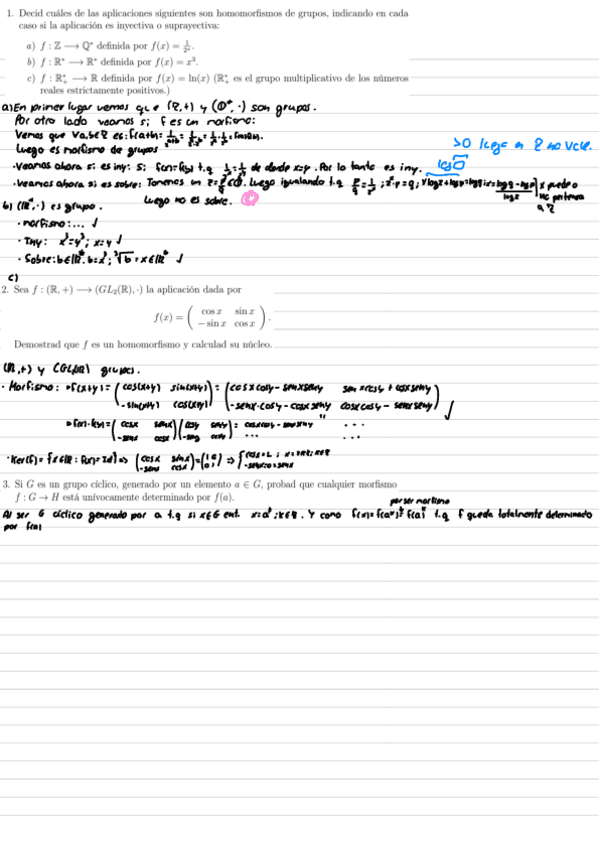 1. Decid cuáles de las aplicaciones siguientes son homomorfismos de grupos, indicando en cada
caso si la aplicación es inyectiva o suprayectiva:
a) f : ℤ ⟶ ℚ* definida por f(x) = 1/2ˣ.
b) f : ℝ* ⟶ ℝ* definida por f(x) = x³.
c) f : ℝ*₊ ⟶ ℝ definida por f(x) = ln(x) (ℝ*₊ es el grupo multiplicativo de los números
reales estrictamente positivos.)
a) En primer lugar vemos que (ℤ,+) y (ℚ*,·) son grupos.
Por otro lado veamos si f es un morfismo:
Vemos que ∀a,b∈ℤ es: f(a+b)=
Luego es morfismo de grupos
· Veamos ahora si es iny: si f(x)=f(y) t.q de donde x=y. Por lo tanto es iny.
· Veamos ahora si es sobre: Tomemos un Luego igualando t.q
Luego no es sobre.
b) (ℝ*,·) es grupo.
· morfismo:... ✓
· Iny: x³=y³; x=y ✓
· Sobre: b∈ℝ*. b=x³; ³√b = x∈ℝ* ✓
c)
2. Sea f : (ℝ, +) ⟶ (GL₂(ℝ), ·) la aplicación dada por
f(x) = ( cos x sin x
−sin x cos x ).
Demostrad que f es un homomorfismo y calculad su núcleo.
(ℝ,+) y grupos.
· Morfismo: f(x+y) = ( cos(x+y) sin(x+y) ) = ( cosx cosy - senx seny senx cosy + cosx seny )
( -sin(x+y) cos(x+y) ) ( -senx·cosy - cosx seny cosx cosy - senx seny ) ✓
f(x)·f(y) = ( cosx senx ) ( cosy seny ) = cosx cosy - senx seny ...
( -senx cosx ) ( -seny cosy ) ... ...
· Ker(f) = {x∈ℝ : f(x)=Id} ⇒ ( cosx senx ) = ( 1 0 ) ⇒
( -senx cosx ) ( 0 1 )
3. Si G es un grupo cíclico, generado por un elemento a ∈ G, probad que cualquier morfismo
f : G → H está unívocamente determinado por f(a).
por ser morfismo
Al ser G cíclico generado por a t.q si x∈G ent. x=aᵏ; k∈ℤ. Y como f(x)=f(aᵏ)=f(a)ᵏ t.q f queda totalmente determinado
por f(a)